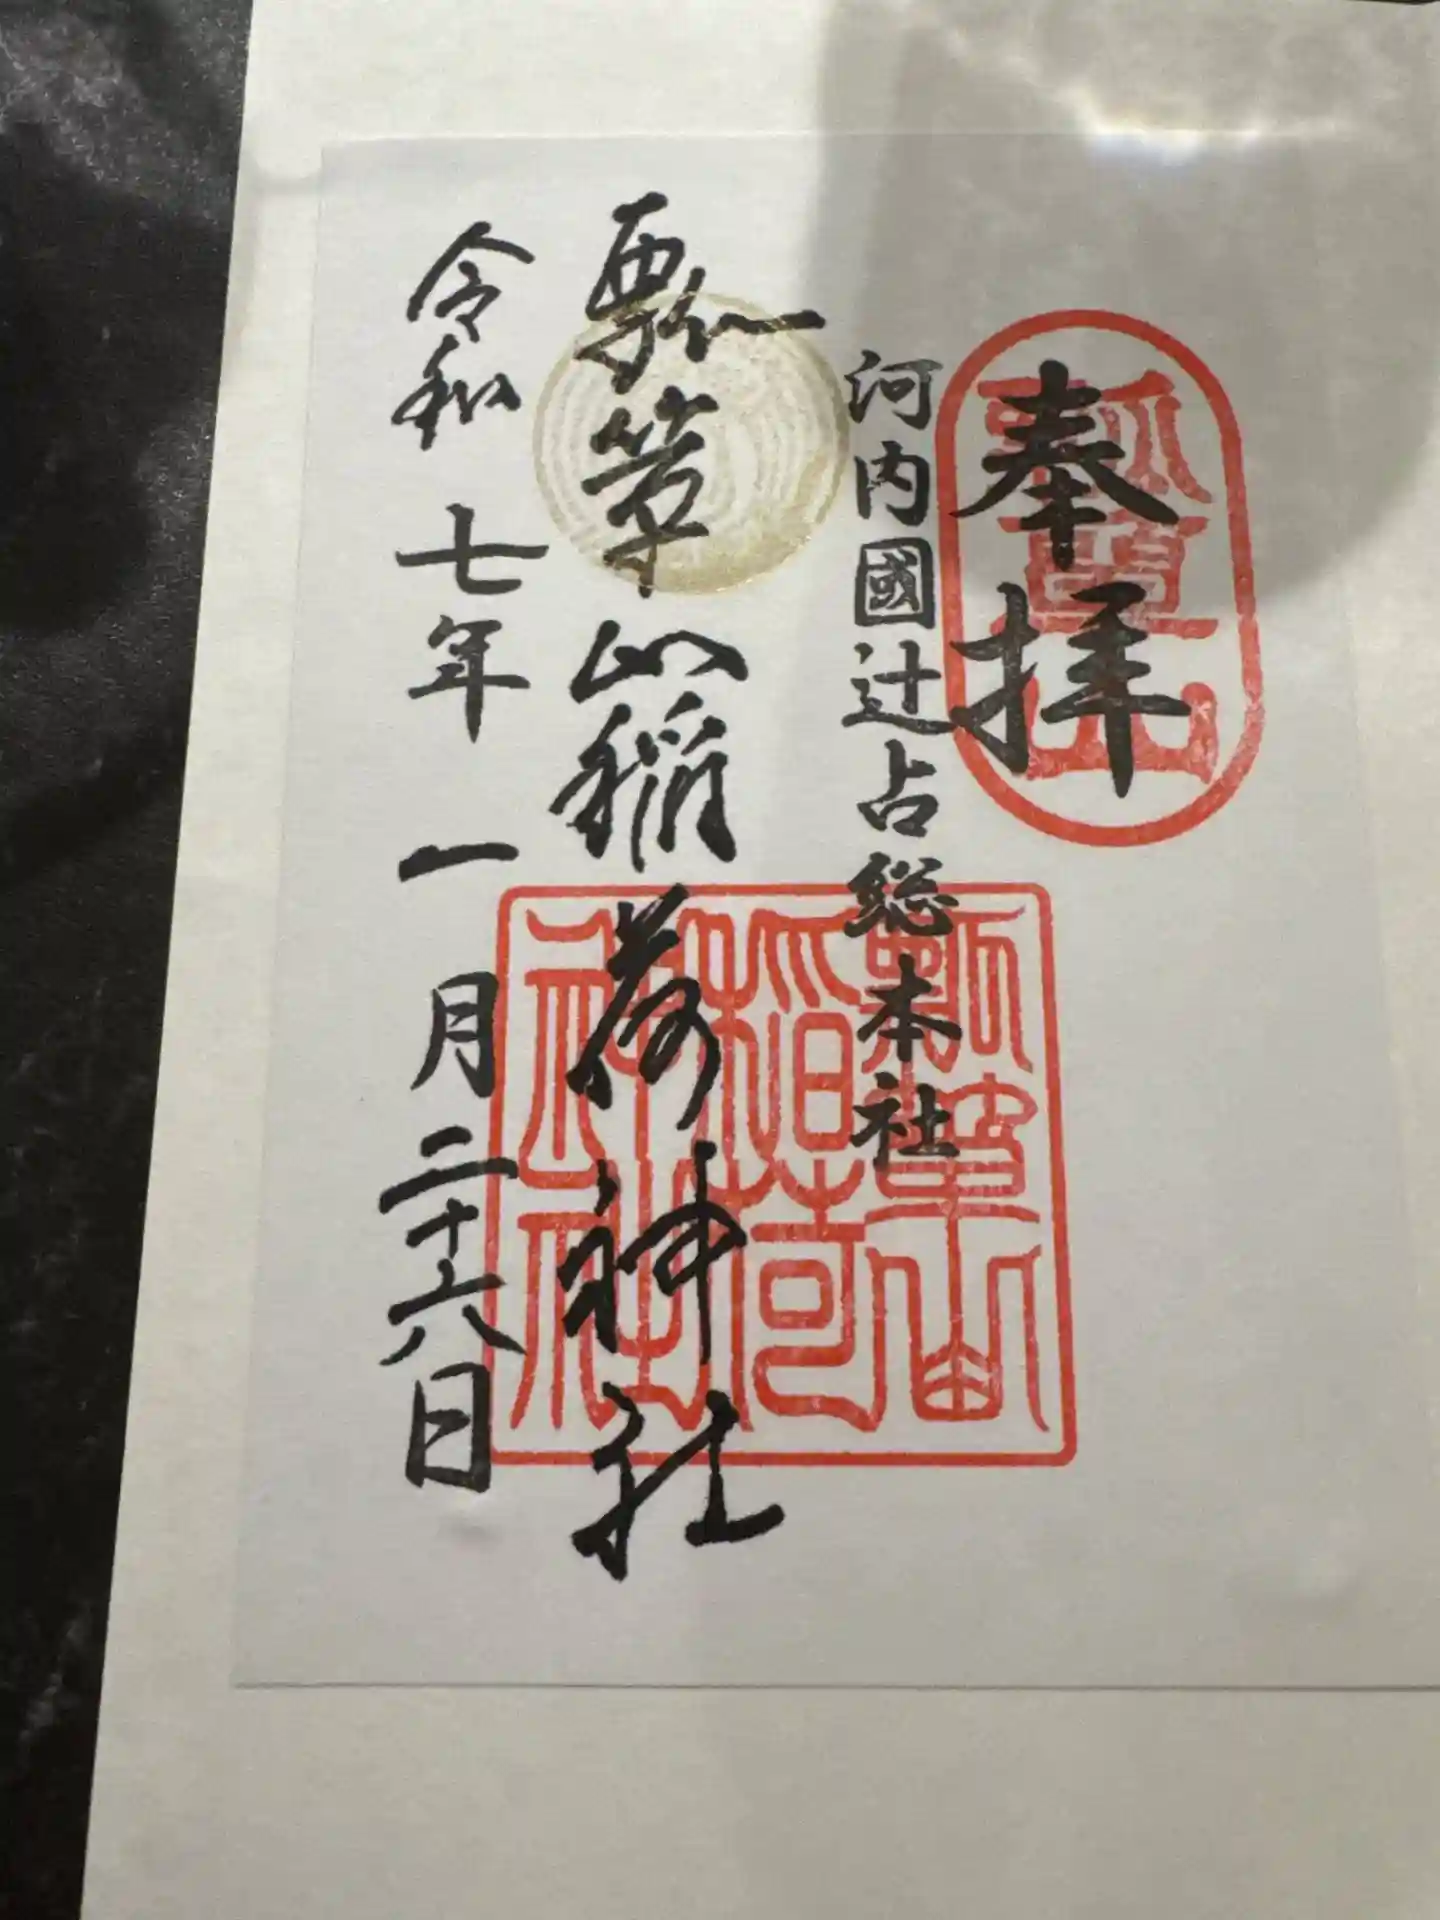 奉拝
瓢簞山
河内國辻占総本社
瓢箪山稲荷神社
瓢箪山稲荷神社
令和七年一月二十六日